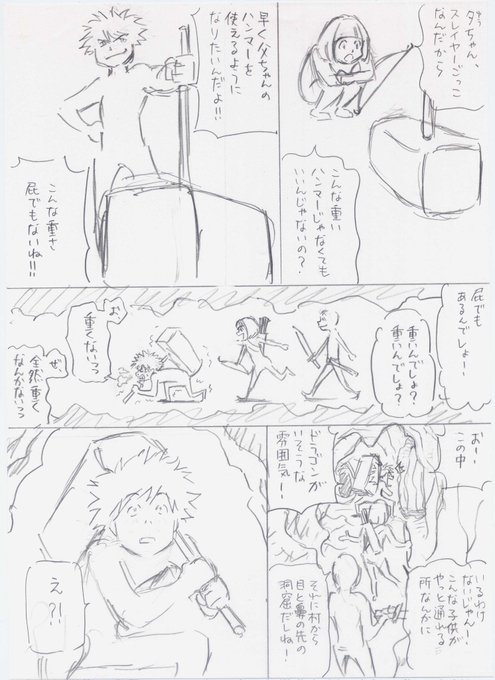 夕ちゃん、
スレイヤーごっこ
なんだから
こんな重い
ハンマーじゃなくても
いいんじゃないの?
早く父ちゃんの
ハンマーを
使えるように
なりたいんだよ!!
こんな重さ
屁でもないね!!
屁でも
あるんでしょー!
重いんでしょ?
重いんでしょ?
お、
重くないっ
ぜ、
全然重く
なんかないっっ
おー!
この中
ドラゴンが
いそうな
雰囲気ー!
いるわけ
ないじゃんー!
こんな子供が
やっと通れる
所なんかに
それに村から
目と鼻の先の
洞窟だしねー!
え?!